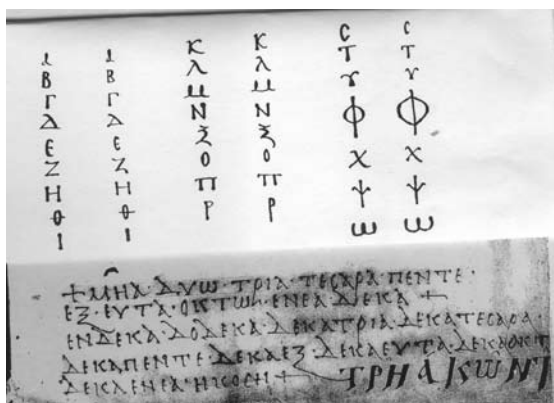 Α Β Γ Δ Ε Ζ Η Θ Ι
Α Β Γ Δ Ε Ζ Η Θ Ι
Κ Λ Μ Ν Ξ Ο Π Ρ
Κ Λ Μ Ν Ξ Ο Π Ρ
Ϲ Τ Υ Φ Χ Ψ Ω
Ϲ Τ Υ Φ Χ Ψ Ω
+ ΜΗΑ·ΔΥΩ·ΤΡΙΑ·ΤΕϹΑΡΑ·ΠΕΝΤΕ·
ΕΞ·ΕΥΤΑ·ΟΚΤΩ·ΕΝΕΑ·ΔΕΚΑ +
ΕΝΔΕΚΑ·ΔΟΔΕΚΑ·ΔΕΚΑΤΡΙΑ·ΔΕΚΑΤΕϹΑΡΑ·
ΔΕΚΑΠΕΝΤΕ·ΔΕΚΑΕΞ·ΔΕΚΑΕΥΤΑ·ΔΕΚΑΟΚΤ
ΔΕΚΑΕΝΕΑ·ΗΚΟϹΗ + ΤΡΗΑΚΩΝΤ